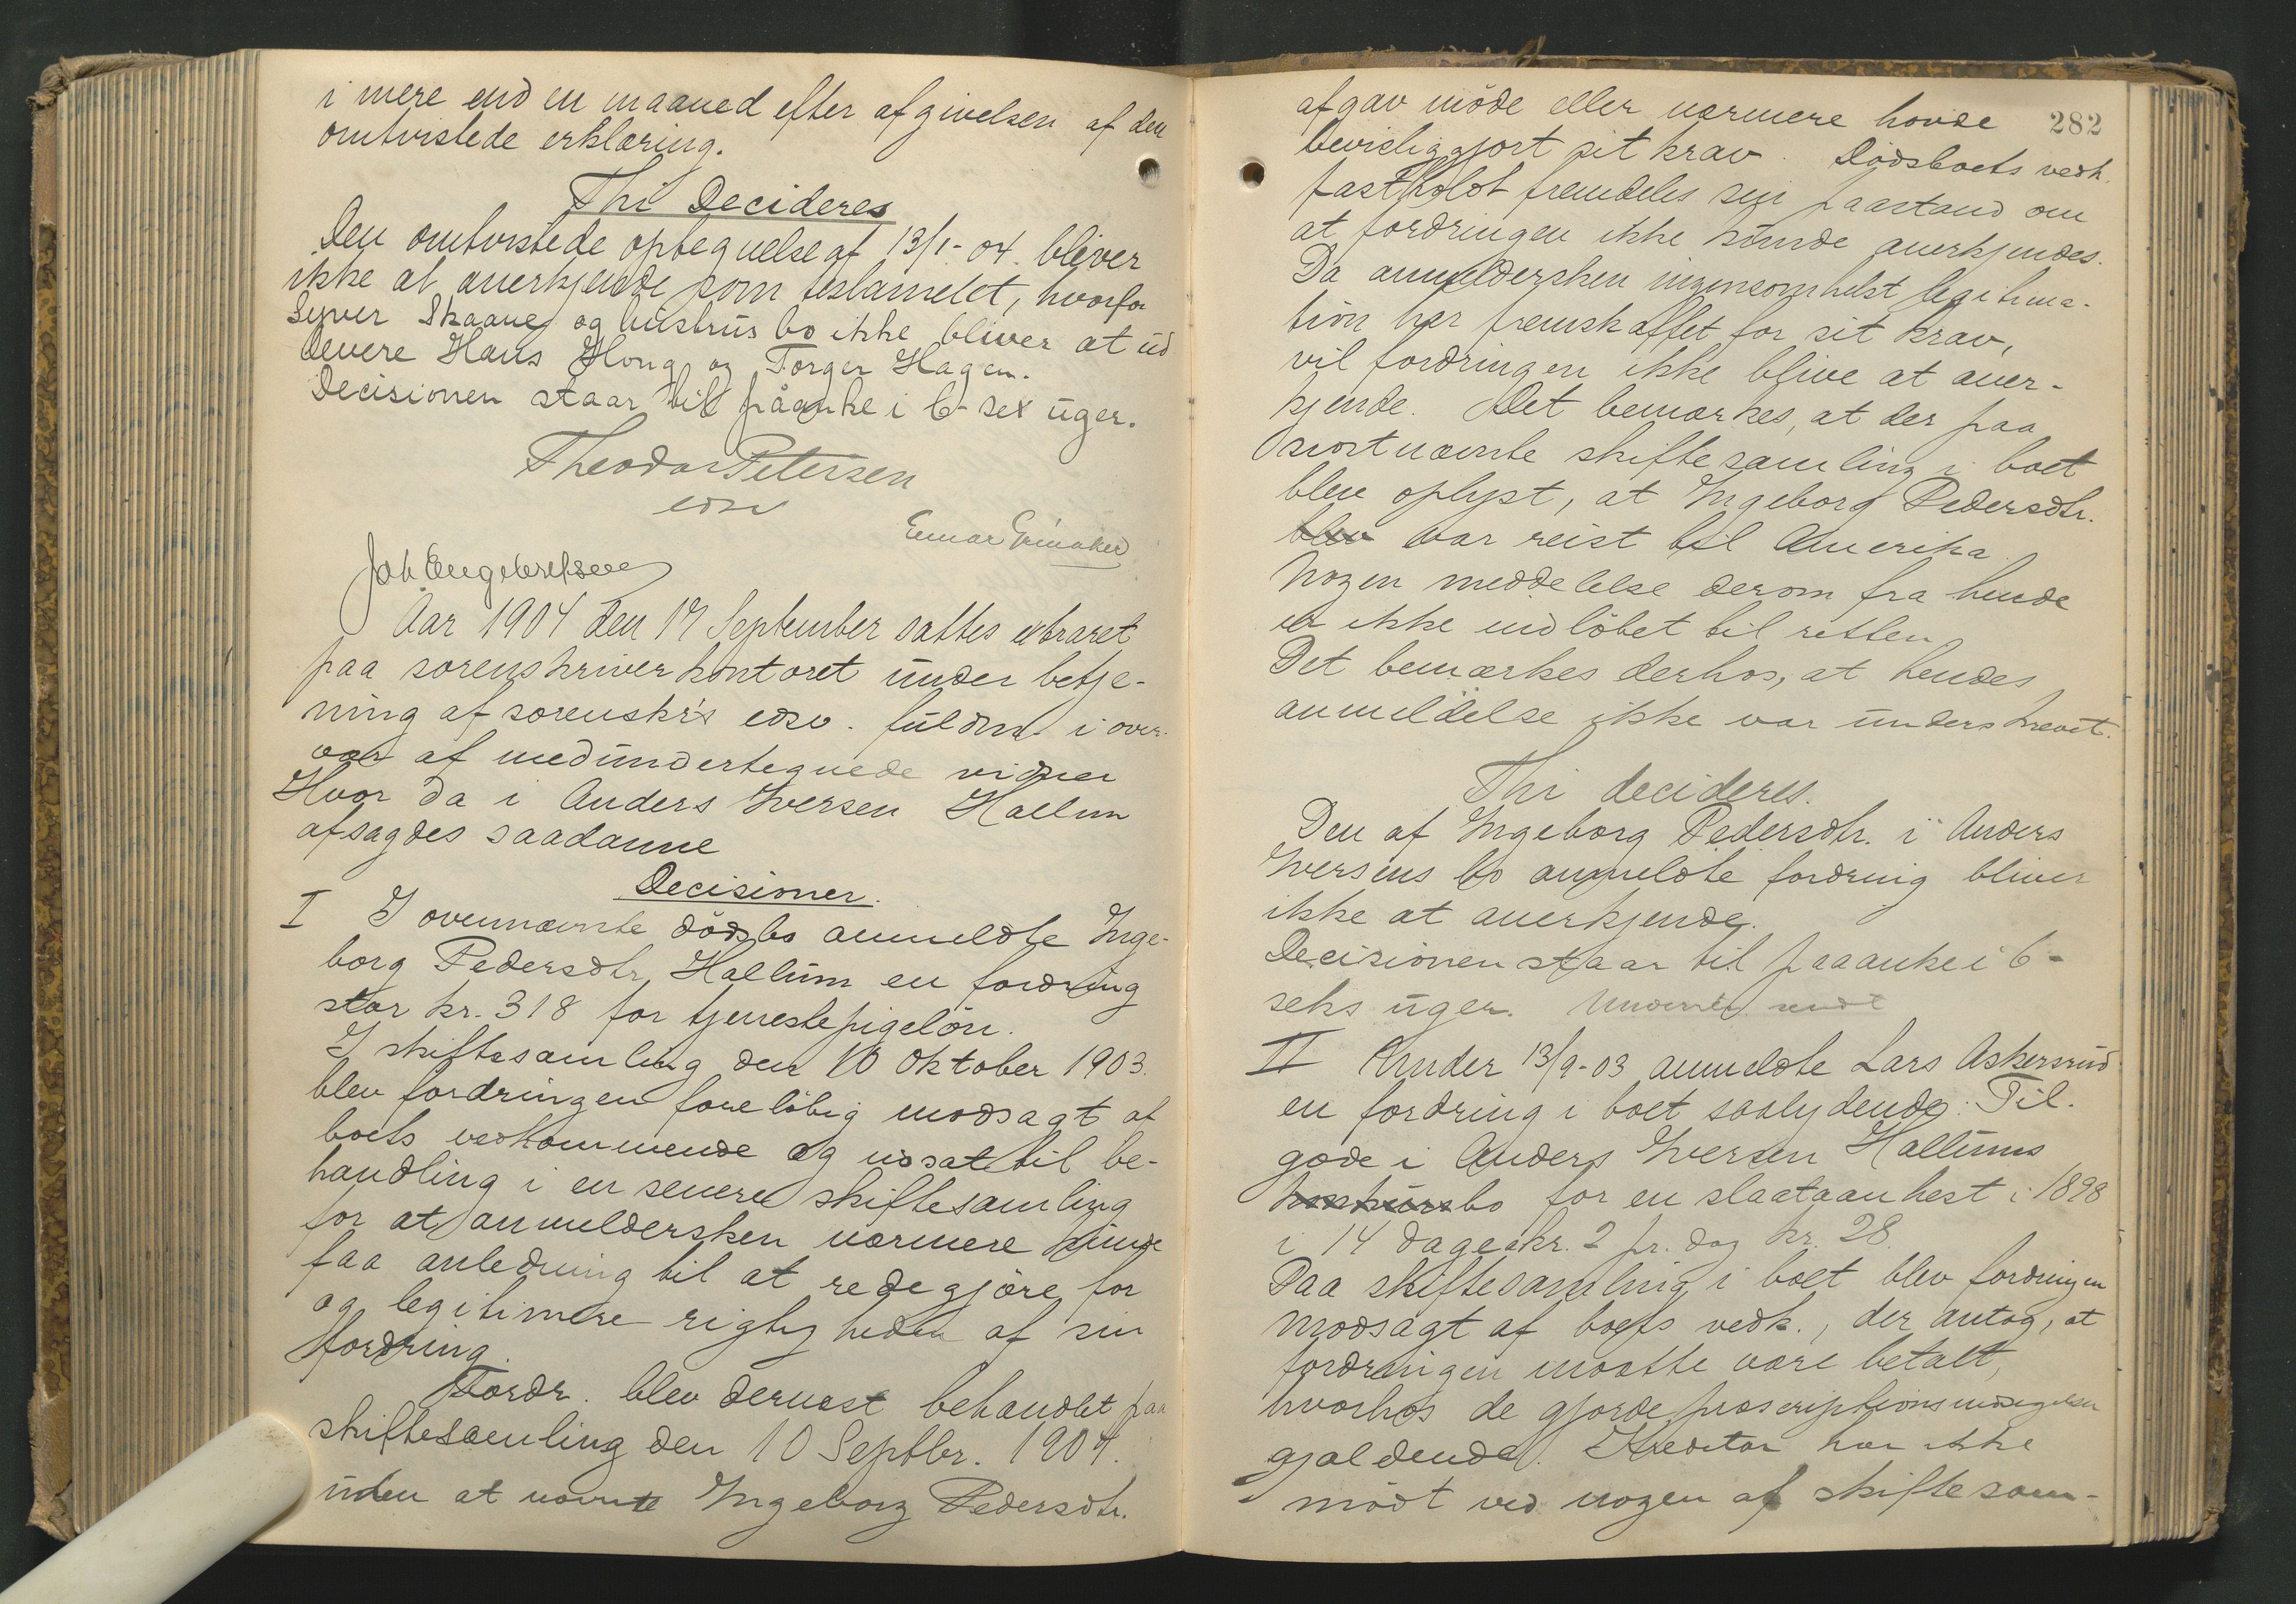 i mere end en maaned efter afgivelsen af den
omtvistede erklæring.
Thi Decideres
Den omtvistede optegnelse af 13/1-04. bliver
ikke at anerkjende som testamentet, hvorfor
Syver Skaanes og hustrus bo ikke bliver at ud
levere Hans Houg og Torger Hagen.
Decisionen staar til påanke i 6- sex uger.
Theodor Petersen
edsv
Einar
Joh. Engebretsen
Aar 1904 den 17 September sattes extraret
paa sorenskriverkontoret under betje-
ning af sorenskr's edsv. fuldm. i over-
vær af medundertegnede vidner
Hvor da i Anders Iversen Hallum
afsagdes saadanne
Decisioner.
I I ovennævnte dödsbo anmeldte Inge-
borg Pedersdtr. Hallum en fordring
stor kr. 318 for tjenestepigelön.
I skiftesamling den 10 Oktober 1903.
blev fordringen forelöbig modsagt af
boets vedkommende og udsat til be-
handling i en senere skiftesamling
for at anmeldersken nærmere kunde
faa anledning til at redegjöre for
og legitimere rigtigheden af sin
fordring.
Fordr. blev dernæst behandlet paa
skiftesamling den 10 Septbr. 1904.
uden at nævnte Ingeborg Pedersdtr.
282
afgav möde eller nærmere havde
bevisliggjort sit krav. Dödsboets vedk.
fastholdt fremdeles sin paastand om
at fordringen ikke kunde anerkjendes.
Da anmeldersken ingensomhelst legitima-
tion har fremskaffet for sit krav,
vil fordringen ikke blive at aner-
kjende. Det bemærkes, at der paa
sidstnævnte skiftesamling i boet
blev oplyst, at Ingeborg Pedersdtr.
blev var reist til Amerika.
Nogen meddelelse derom fra hende
er ikke indlöbet til retten.
Det bemærkes derhos, at hendes
anmeldelse ikke var underskrevet.
Thi decideres.
Den af Ingeborg Pedersdtr. i Anders
Iversens bo anmeldte fordring bliver
ikke at anerkjende.
Decisionen staar til paaanke i 6-
seks uger.
II Under 13/9-03 anmeldte Lars Askersrud
en fordring i boet saalydende: Til-
gode i Anders Iversen Hallums
konkursbo for en slaataanhest i 1898
i 14 dage a kr. 2 pr. dag kr. 28.
Paa skiftesamling i boet blev fordringen
modsagt af boets vedk., der antog, at
fordringen maatte være betalt,
hvorhos de gjorde præscriptionsindsigelsen
gjældende. Kreditor har ikke
mödt ved nogen af skiftesam-